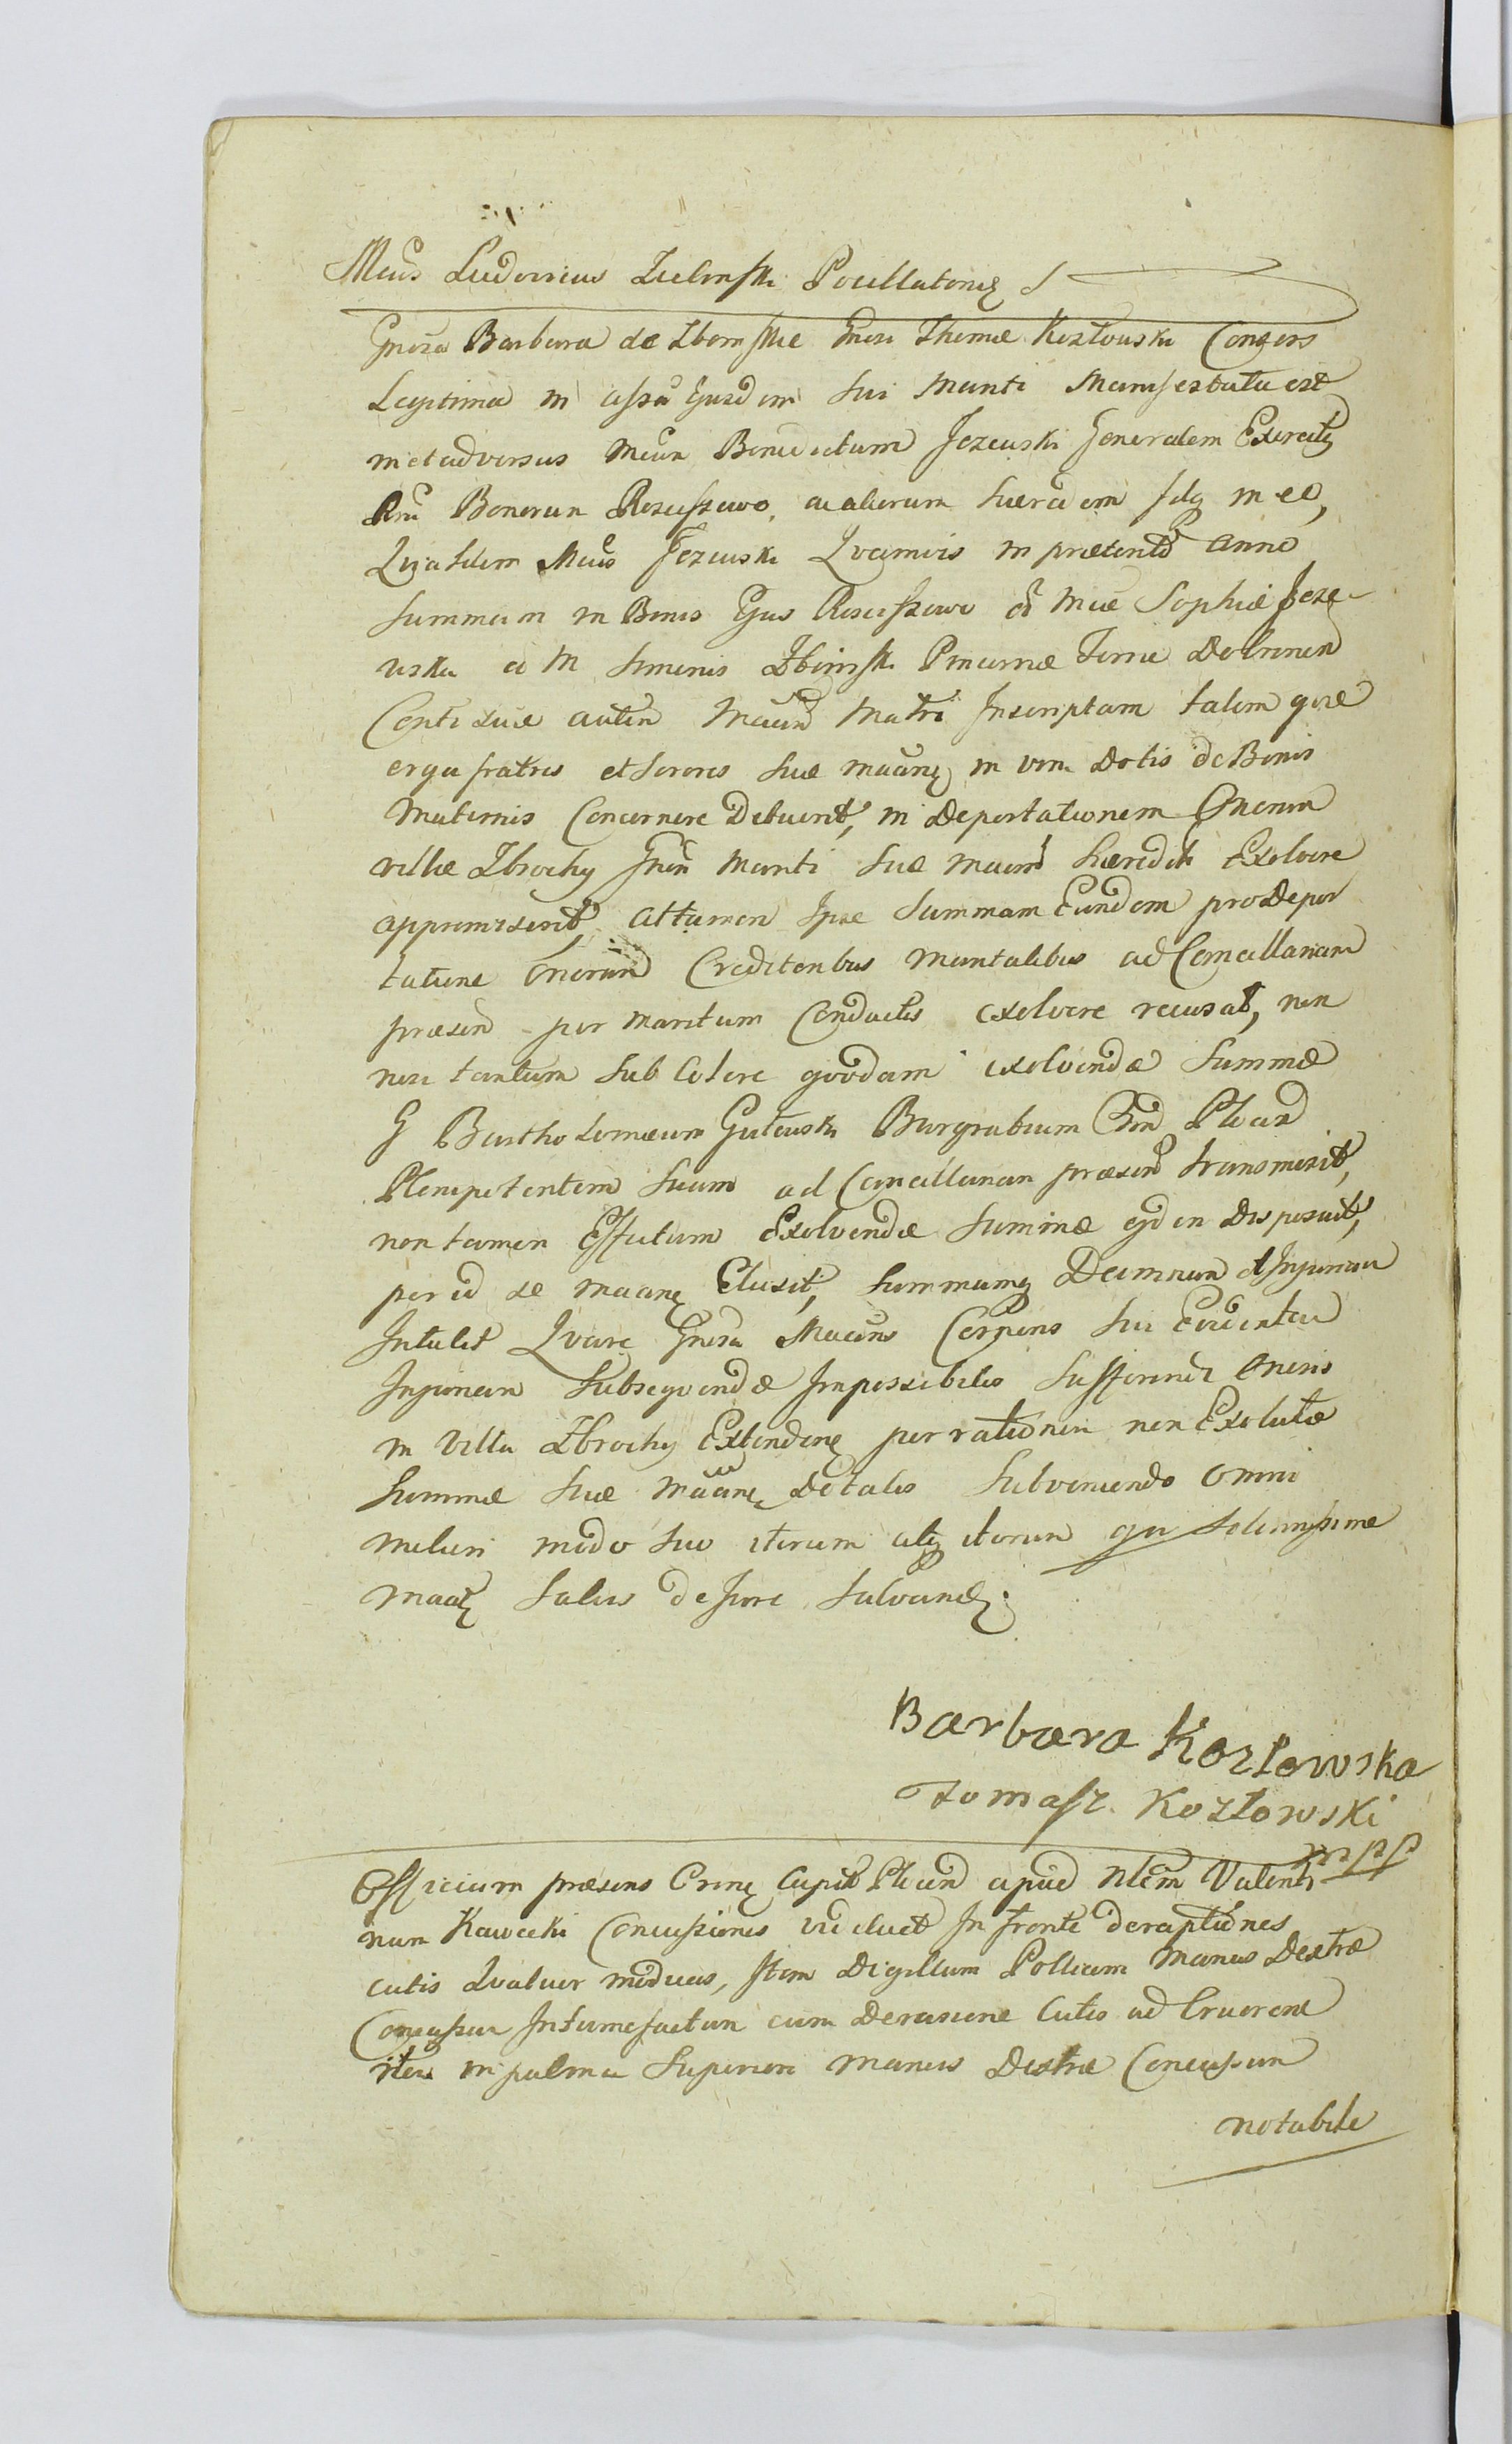 Mcus Ludovicus Zielinski Pocillatoris
Gnosa Barbara de Zboinskie Gnosi Thomæ Kozłouski Consors
Legitima in assa Ejusdem sui Mariti Manifestata est
in et adversus Mcum Benedictum Jezeuski Generalem Exercitq
Bonorum Roscissewo, ac aliorum hæredem
Mcus Jezeuski Quamvis in præterito anno
summam in Bonis Ejus Rosciszewo Mcæ Sophiæ Jeze
uska a M Simonis Zboinski Pincernæ Terræ Dobrinen
Conti suæ autem Maan Matri Inscriptam talem qvæ
erga fratres et sorores suæ maanq in vim Dotis de Bonis
Maternis Concernere Debuerit, in Deportationem Onerum
villæ Zbrochy Gnsi Mariti suæ maan hæredit Exolvere
appromiserit, attamen Ipse Summam Eandem pro Depor
tatione Onerum Creditoribus Maritalibus ad Cancellariam
præsen per Maritum Conductis exolvere recusat, non
tantum sub Colore qvodam exolvendæ Summæ
G Bartholomæum Guteuski Burgrabium Plocen
Plenipotentem suum ad Cancellariam præsen transmisit,
non tamen Effectum Exolvendæ Summæ disposuit,
per id se maanq Elusit, summamq Damnum et Injuriam
Intulit Qvare Gnosa Maans Carpens sui Evidentem
Injuriam Subseqvendæ Impossibilis Sufferendi Oneris
in Villa Zbrochy Extendenq per rationem non Exolutæ
Summæ suæ maanq Dotalis Subveniendo omni
meliori modo suo iterum atq iterum qu solennissime
maatq Salvis de Jure Salvandq.
Barbara Kozłowska
Tomasz Kozłowski
mpp
Officium præsens Crinq Capit Plocen apud Nlem Valenti
num Kawecki Concussiones videlicet In fronte deraptiones
cutis Qvatuor modicas, Item Digitum Pollicem Manus Dextræ
Intumefactum cum Derasione Cutis ad Cruorem
item in palma Superiori manus Dextræ Concussum
notabile